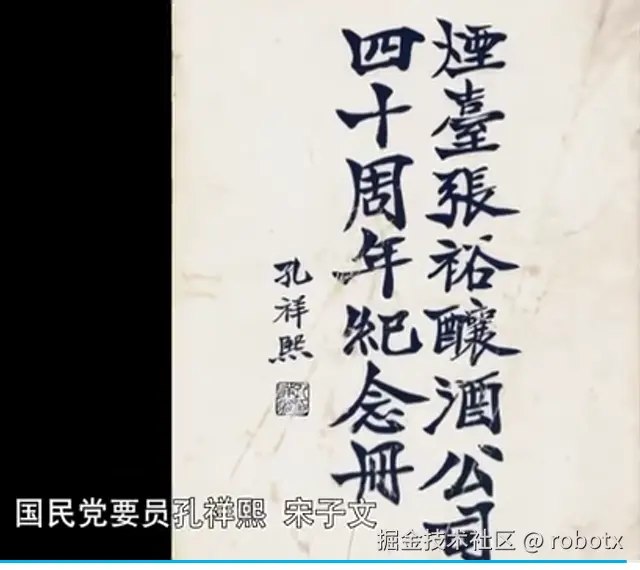 煙臺張裕釀酒公司
四十周年紀念冊
孔祥熙
国民党要员孔祥熙 宋子文
掘金技术社区 @ robotx